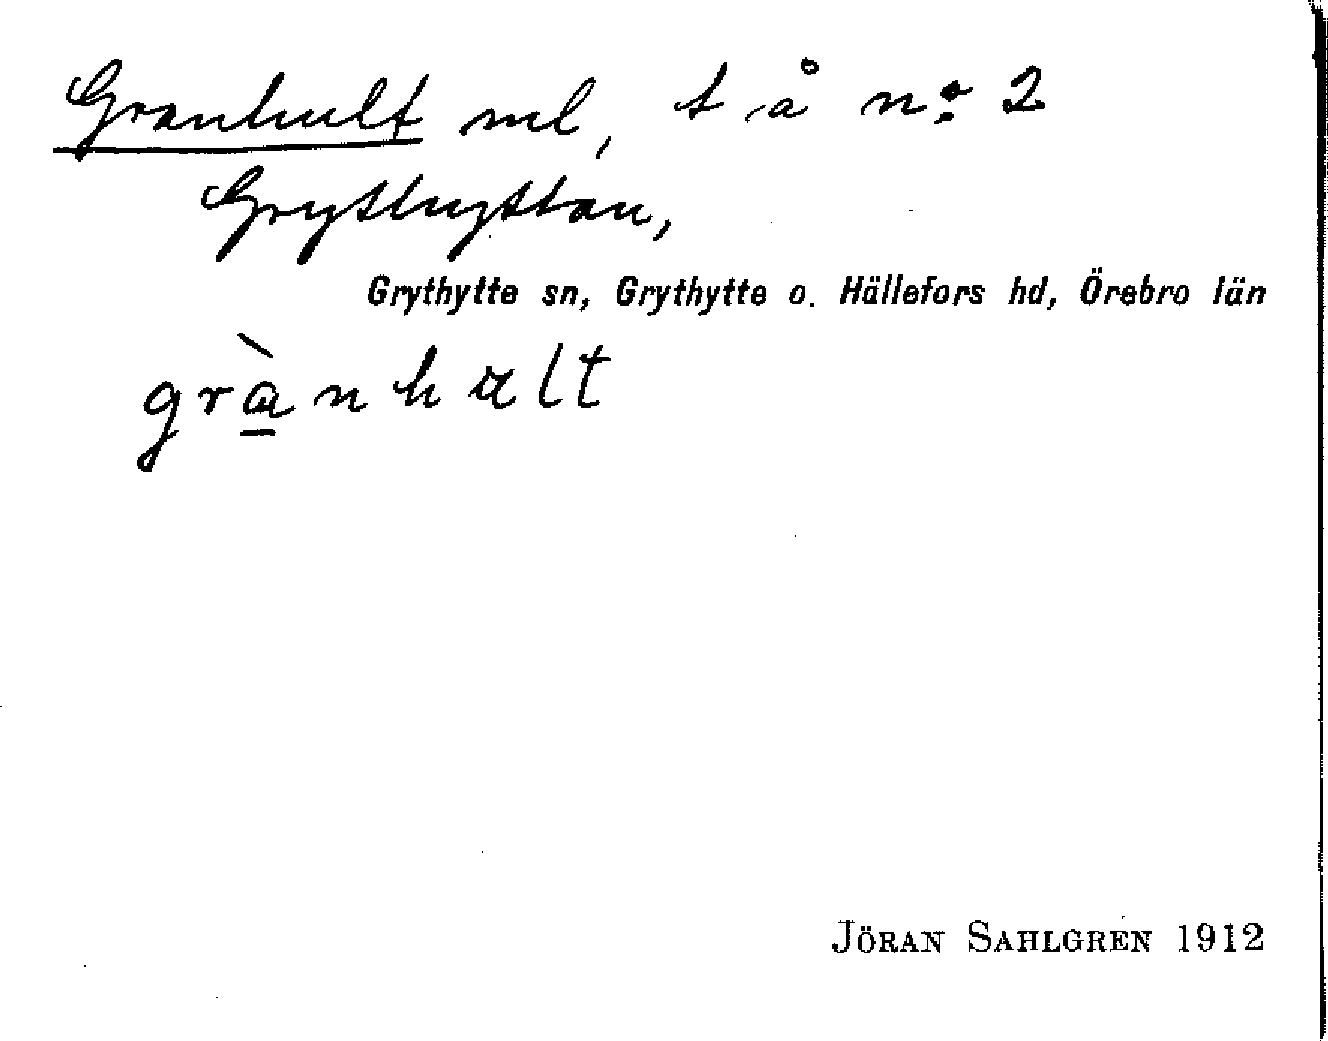 Granhult ml, t å no. 2
Grythyttan,
Grythytte sn, Grythytte o. Hällefors hd, Örebro län
grànhult
JÖRAN SAHLGREN 1912